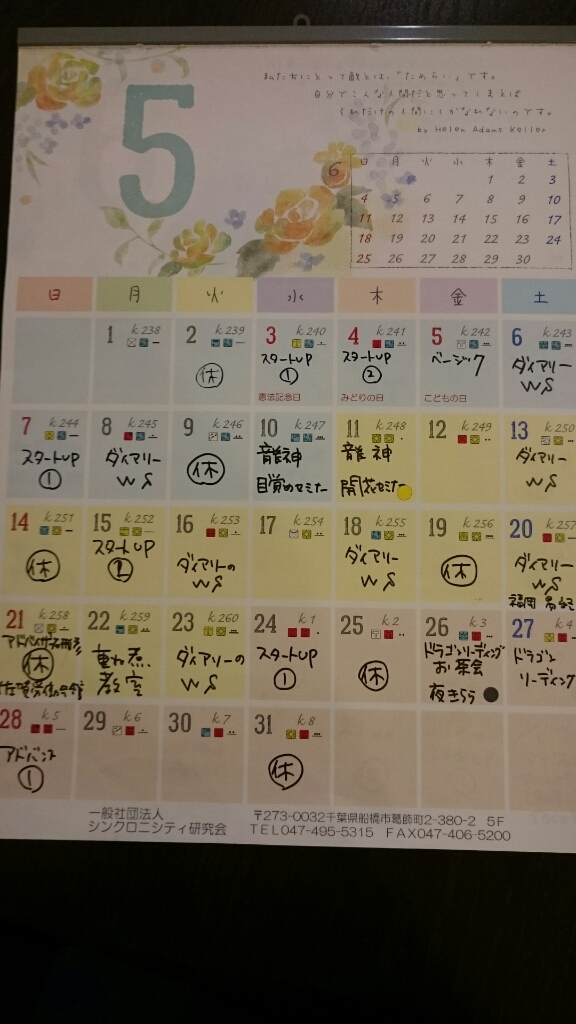 5
私たちにとって敵とは、「ためらい」です。
自分でこんな人間だと思ってしまえば
それだけの人間にしかなれないのです。
by Helen Adams Keller
6
日 月 火 水 木 金 土
1 2 3
4 5 6 7 8 9 10
11 12 13 14 15 16 17
18 19 20 21 22 23 24
25 26 27 28 29 30
日 月 火 水 木 金 土
1 k.238
2 k.239
休
3 k.240
スタートUP
①
憲法記念日
4 k.241
スタートUP
②
みどりの日
5 k.242
ベーシック
こどもの日
6 k.243
ダイアリー
WS
7 k.244
スタートUP
①
8 k.245
ダイアリー
WS
9 k.246
休
10 k.247
龍神
目覚めセミナー
11 k.248
龍神
開花セミナー
12 k.249
13 k.250
ダイアリー
WS
14 k.251
休
15 k.252
スタートUP
②
16 k.253
ダイアリーの
WS
17 k.254
18 k.255
ダイアリー
WS
19 k.256
休
20 k.257
ダイアリー
WS
福岡
21 k.258
休
22 k.259
重ね煮
教室
23 k.260
ダイアリーの
WS
24 k.1
スタートUP
①
25 k.2
休
26 k.3
ドラゴンリーディング
お茶会
夜きらら
27 k.4
ドラゴン
リーディング
28 k.5
アドバンス
①
29 k.6
30 k.7
31 k.8
休
一般社団法人
シンクロニシティ研究会
〒273-0032千葉県船橋市葛飾町2-380-2 5F
TEL047-495-5315 FAX047-406-5200